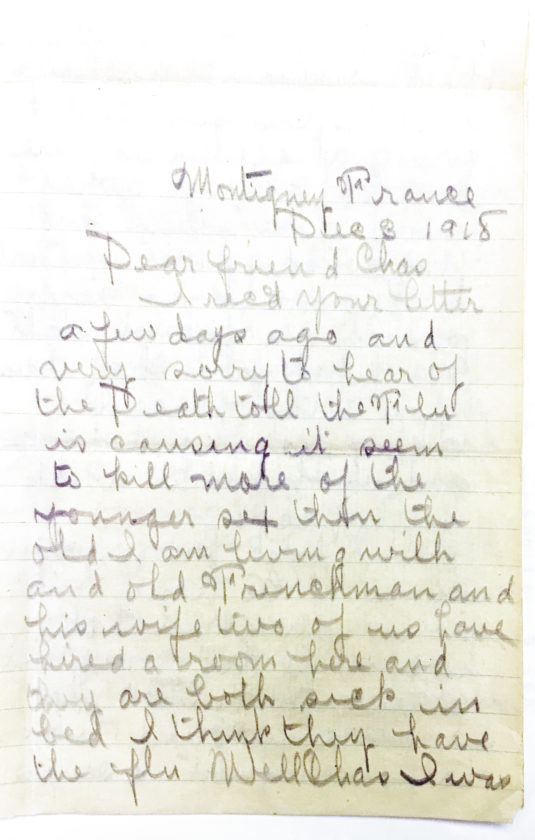 Montigney France
Dec 3 1918
Dear friend Chas
I rec'd your letter
a few days ago and
very sorry to hear of
the Death toll the Flu
is causing it seem
to kill more of the
younger sex than the
old I am living with
and old Frenchman and
his wife two of us have
hired a room here and
they are both sick in
bed I think they have
the flu Well Chas I was